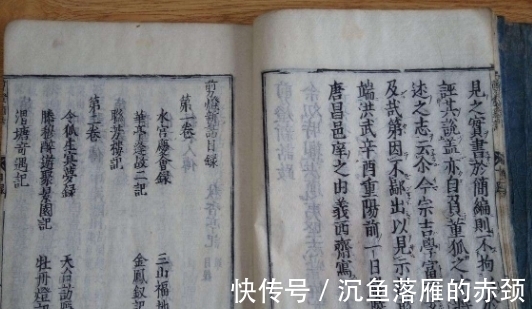 見之實書於簡編則不拘
誣其說蓋亦自負董狐之
述之志云尒今宗吉學富
及哉第因不鄙出以見示
端洪武辛酉重陽前一日
唐昌邑庠之由義西齋寓
剪燈新話目錄
第一卷
水宮慶會錄 三山福地
華亭逢故人記 金鳳釵記
聯芳樓記
第二卷
令狐生冥夢錄 天台訪隱
滕穆醉遊聚景園記 牡丹燈記
渭塘奇遇記
快传号 / 沉鱼落雁的赤颈